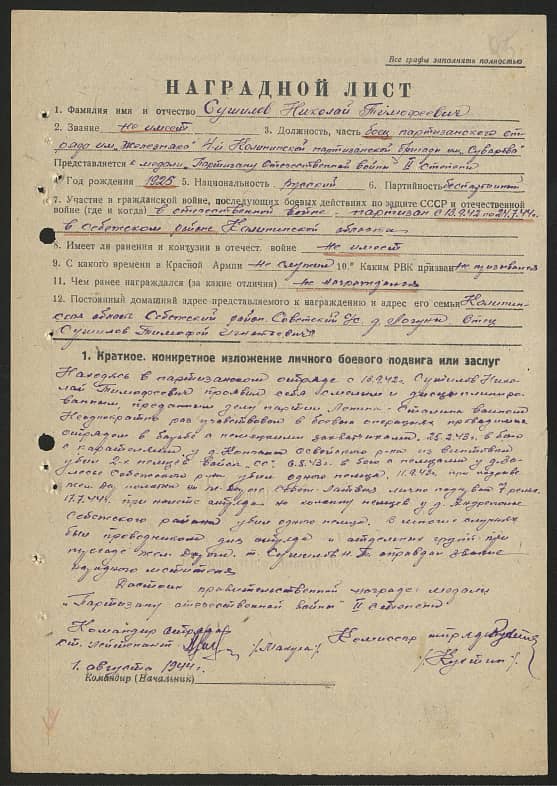 Все графы заполнять полностью
НАГРАДНОЙ ЛИСТ
1. Фамилия имя и отчество Сушилов Николай Тимофеевич
2. Звание не имеет 3. Должность, часть боец партизанского от-
ряда им. Железняка 4-й Калининской партизанской бригады им. Суворова
Представляется к медали "Партизану Отечественной войны" II Степени
4. Год рождения 1925 5. Национальность русский 6. Партийность беспартийн
7. Участие в гражданской войне, последующих боевых действиях по защите СССР и отечественной
войне (где и когда) в отечественной войне. партизан с 18.9.42 по 24.7.44г.
в Себежском районе Калининской области
8. Имеет ли ранения и контузии в отечест. войне не имеет
9. С какого времени в Красной Армии не служил 10. Каким РВК призван не призывался
11. Чем ранее награждался (за какие отличия) не награждался
12. Постоянный домашний адрес представляемого к награждению и адрес его семьи Калинин-
ская область Себежский район Советский с/с д. Логуны Отец
Сушилов Тимофей Игнатьевич
1. Краткое, конкретное изложение личного боевого подвига или заслуг
Находясь в партизанском отряде с 18.9.42г. Сушилов Нико-
лай Тимофеевич проявил себя смелым и дисциплиниро-
ванным, преданным делу партии Ленина-Сталина воином
Неоднократно раз участвовал в боевых операциях проводимых
отрядом в борьбе с немецкими захватчиками. 25.2.43г. в бою
с карателями у д. Освейского р-на из винтовки
убил 2-х немцев войск "СС". 6.8.43г. в бою с немцами у д.
Себежского р-на убил одного немца. 11.9.42г. при
жел. дор. Себеж-Латвия лично подорвал 7 рельс.
17.7.44г. при налете отряда на колонну немцев у д.
Себежского района убил одного немца.
был проводником для отряда и отдельных групп при
жел. дороги. т. Сушилов Н. Т. оправдал звание
народного мстителя
Достоин правительственной награды: медали
"Партизану отечественной войны" II Степени
Командир отряда
ст. Лейтенант
Комиссар отряда
1. августа 1944г.
Командир (Начальник)